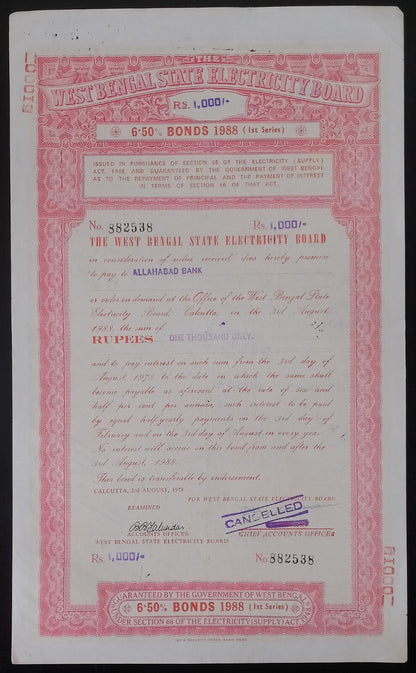 THE
WEST BENGAL STATE ELECTRICITY BOARD
RS. 1,000/-
6·50% BONDS 1988 (1st Series)
ISSUED IN PURSUANCE OF SECTION 66 OF THE ELECTRICITY (SUPPLY)
ACT, 1948, AND GUARANTEED BY THE GOVERNMENT OF WEST BENGAL
AS TO THE REPAYMENT OF PRINCIPAL AND THE PAYMENT OF INTEREST
IN TERMS OF SECTION 66 OF THAT ACT.
No. 882538 Rs. 1,000/-
THE WEST BENGAL STATE ELECTRICITY BOARD
in consideration of value received, does hereby promise
to pay to ALLAHABAD BANK
or order on demand at the Office of the West Bengal State
Electricity Board, Calcutta, on the 3rd August,
1988, the sum of
RUPEES ONE THOUSAND ONLY.
and to pay interest on such sum from the 3rd day of
August, 1978 to the date on which the same shall
become payable as aforesaid at the rate of six and
half per cent per annum, such interest to be paid
by equal half-yearly payments on the 3rd day of
February and on the 3rd day of August in every year.
No interest will accrue on this bond from and after the
3rd August, 1988.
This bond is transferable by endorsement.
CALCUTTA, 3rd AUGUST, 1978
FOR WEST BENGAL STATE ELECTRICITY BOARD
EXAMINED
CANCELLED
ACCOUNTS OFFICER, CHIEF ACCOUNTS OFFICER
WEST BENGAL STATE ELECTRICITY BOARD
Rs. 1,000/- No. 882538
GUARANTEED BY THE GOVERNMENT OF WEST BENGAL
6·50% BONDS 1988 (1st Series)
UNDER SECTION 66 OF THE ELECTRICITY (SUPPLY) ACT,